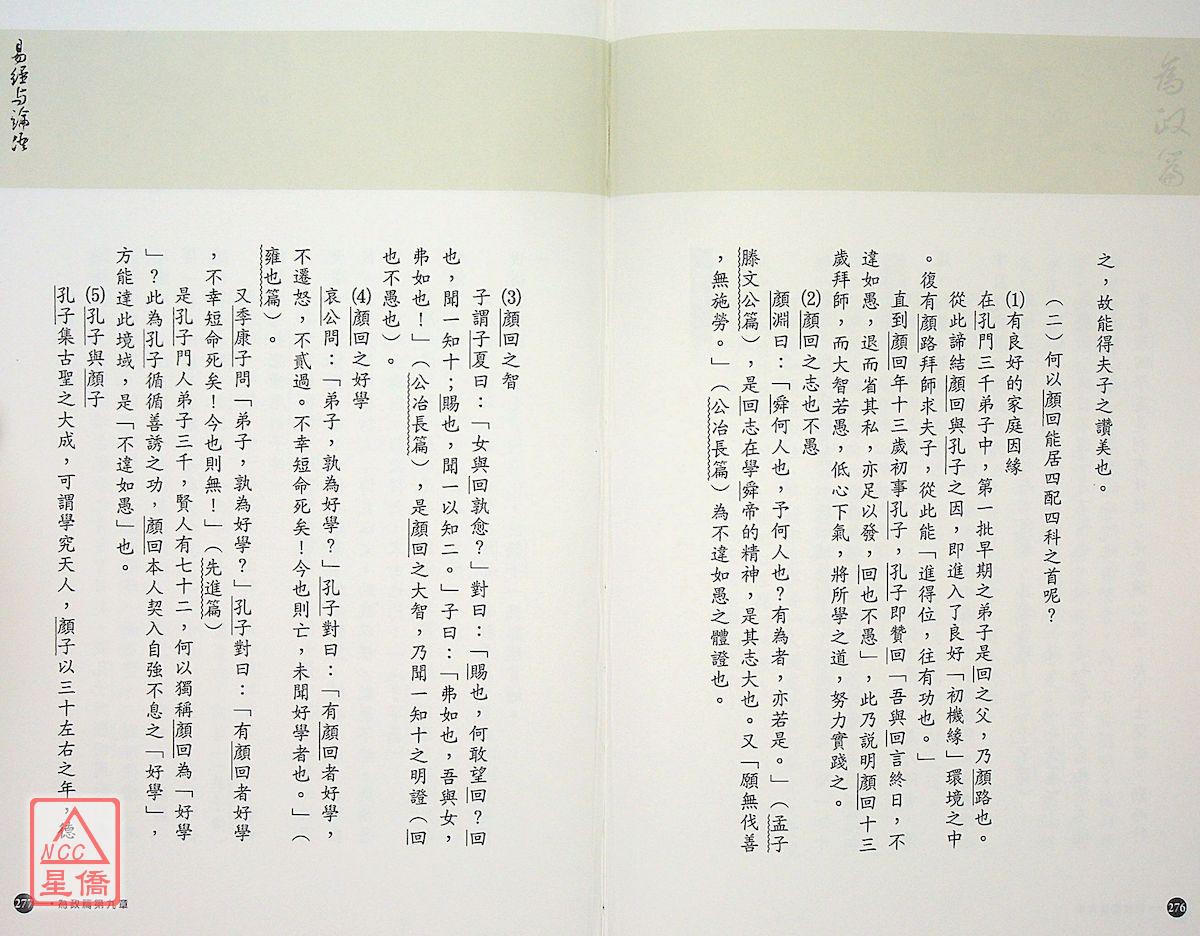 為政篇
之，故能得夫子之讚美也。
（二）何以顏回能居四配四科之首呢？
⑴有良好的家庭因緣
在孔門三千弟子中，第一批早期之弟子是回之父，乃顏路也。
從此諦結顏回與孔子之因，即進入了良好「初機緣」環境之中
。復有顏路拜師求夫子，從此能「進得位，往有功也。」
直到顏回年十三歲初事孔子，孔子即贊回「吾與回言終日，不
違如愚，退而省其私，亦足以發，回也不愚」，此乃說明顏回十三
歲拜師，而大智若愚，低心下氣，將所學之道，努力實踐之。
⑵顏回之志也不愚
顏淵曰：「舜何人也，予何人也？有為者，亦若是。」（孟子
滕文公篇），是回志在學舜帝的精神，是其志大也。又「願無伐善
，無施勞。」（公冶長篇）為不違如愚之體證也。
276
易經与論語
⑶顏回之智
子謂子夏曰：「女與回孰愈？」對曰：「賜也，何敢望回？回
也，聞一知十；賜也，聞一以知二。」子曰：「弗如也，吾與女，
弗如也！」（公冶長篇），是顏回之大智，乃聞一知十之明證（回
也不愚也）。
⑷顏回之好學
哀公問：「弟子，孰為好學？」孔子對曰：「有顏回者好學，
不遷怒，不貳過。不幸短命死矣！今也則亡，未聞好學者也。」（
雍也篇）。
又季康子問「弟子，孰為好學？」孔子對曰：「有顏回者好學
，不幸短命死矣！今也則無！」（先進篇）
是孔子門人弟子三千，賢人有七十二，何以獨稱顏回為「好學
」？此為孔子循循善誘之功，顏回本人契入自強不息之「好學」，
方能達此境域，是「不違如愚」也。
⑸孔子與顏子
孔子集古聖之大成，可謂學究天人，顏子以三十左右之年，德
277
・為政篇第九章
NCC
星僑